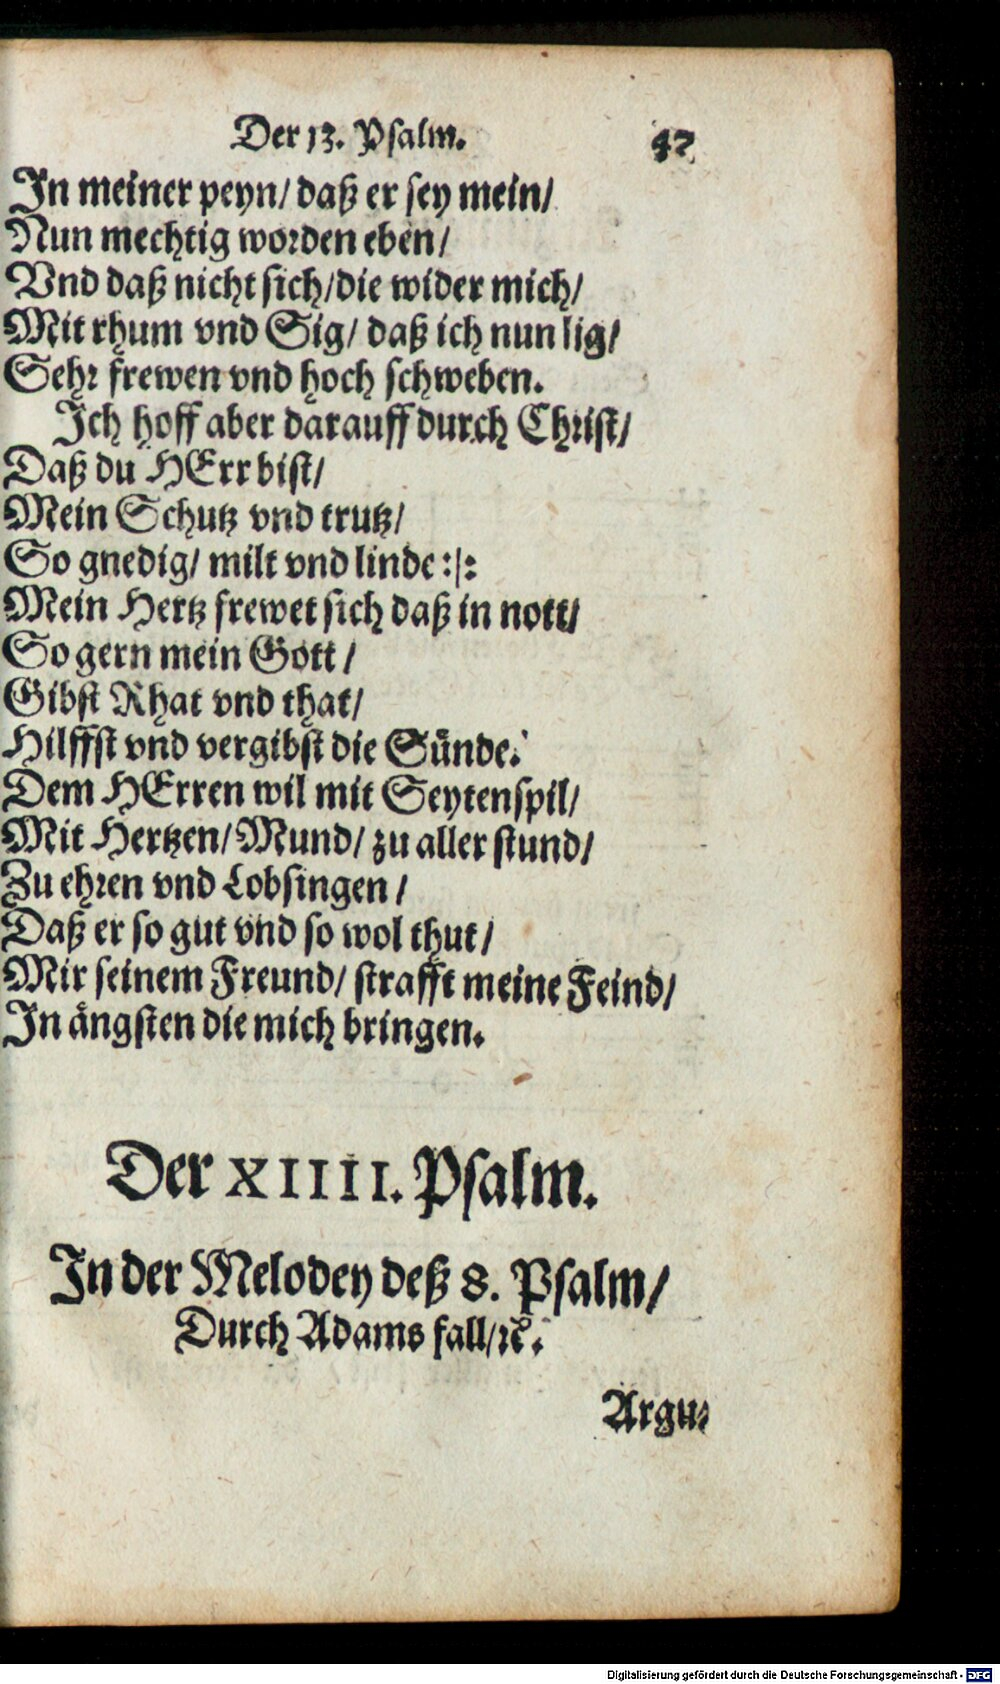 Der 13. Psalm. 47
In meiner peyn/ daß er sey mein/
Nun mechtig worden eben/
Vnd daß nicht sich/die wider mich/
Mit rhum vnd Sig/ daß ich nun lig/
Sehr frewen vnd hoch schweben.
Ich hoff aber darauff durch Christ/
Daß du HErr bist/
Mein Schutz vnd trutz/
So gnedig/ milt vnd linde :/:
Mein Hertz frewet sich daß in nott/
So gern mein Gott /
Gibst Rhat vnd that/
Hilffst vnd vergibst die Sünde.
Dem HErren wil mit Seytenspil/
Mit Hertzen/ Mund/ zu aller stund/
Zu ehren vnd Lobsingen /
Daß er so gut vnd so wol thut/
Mir seinem Freund/ strafft meine Feind/
In ängsten die mich bringen.
Der XIIII. Psalm.
In der Melodey deß 8. Psalm/
Durch Adams fall/ꝛc.
Argu-
Digitalisierung gefördert durch die Deutsche Forschungsgemeinschaft - DFG